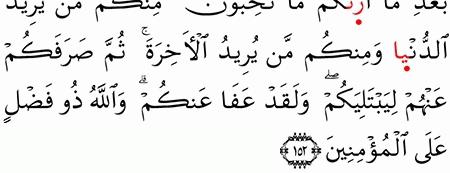 بَعْدِ مَا أَرَىٰكُم مَّا تُحِبُّونَ ۚ مِنكُم مَّن يُرِيدُ
الدُّنْيَا وَمِنكُم مَّن يُرِيدُ الْأَخِرَةَ ۚ ثُمَّ صَرَفَكُمْ
عَنْهُمْ لِيَبْتَلِيَكُمْ ۖ وَلَقَدْ عَفَا عَنكُمْ ۗ وَاللَّهُ ذُو فَضْلٍ
عَلَى الْمُؤْمِنِينَ ﴿١٥٢﴾